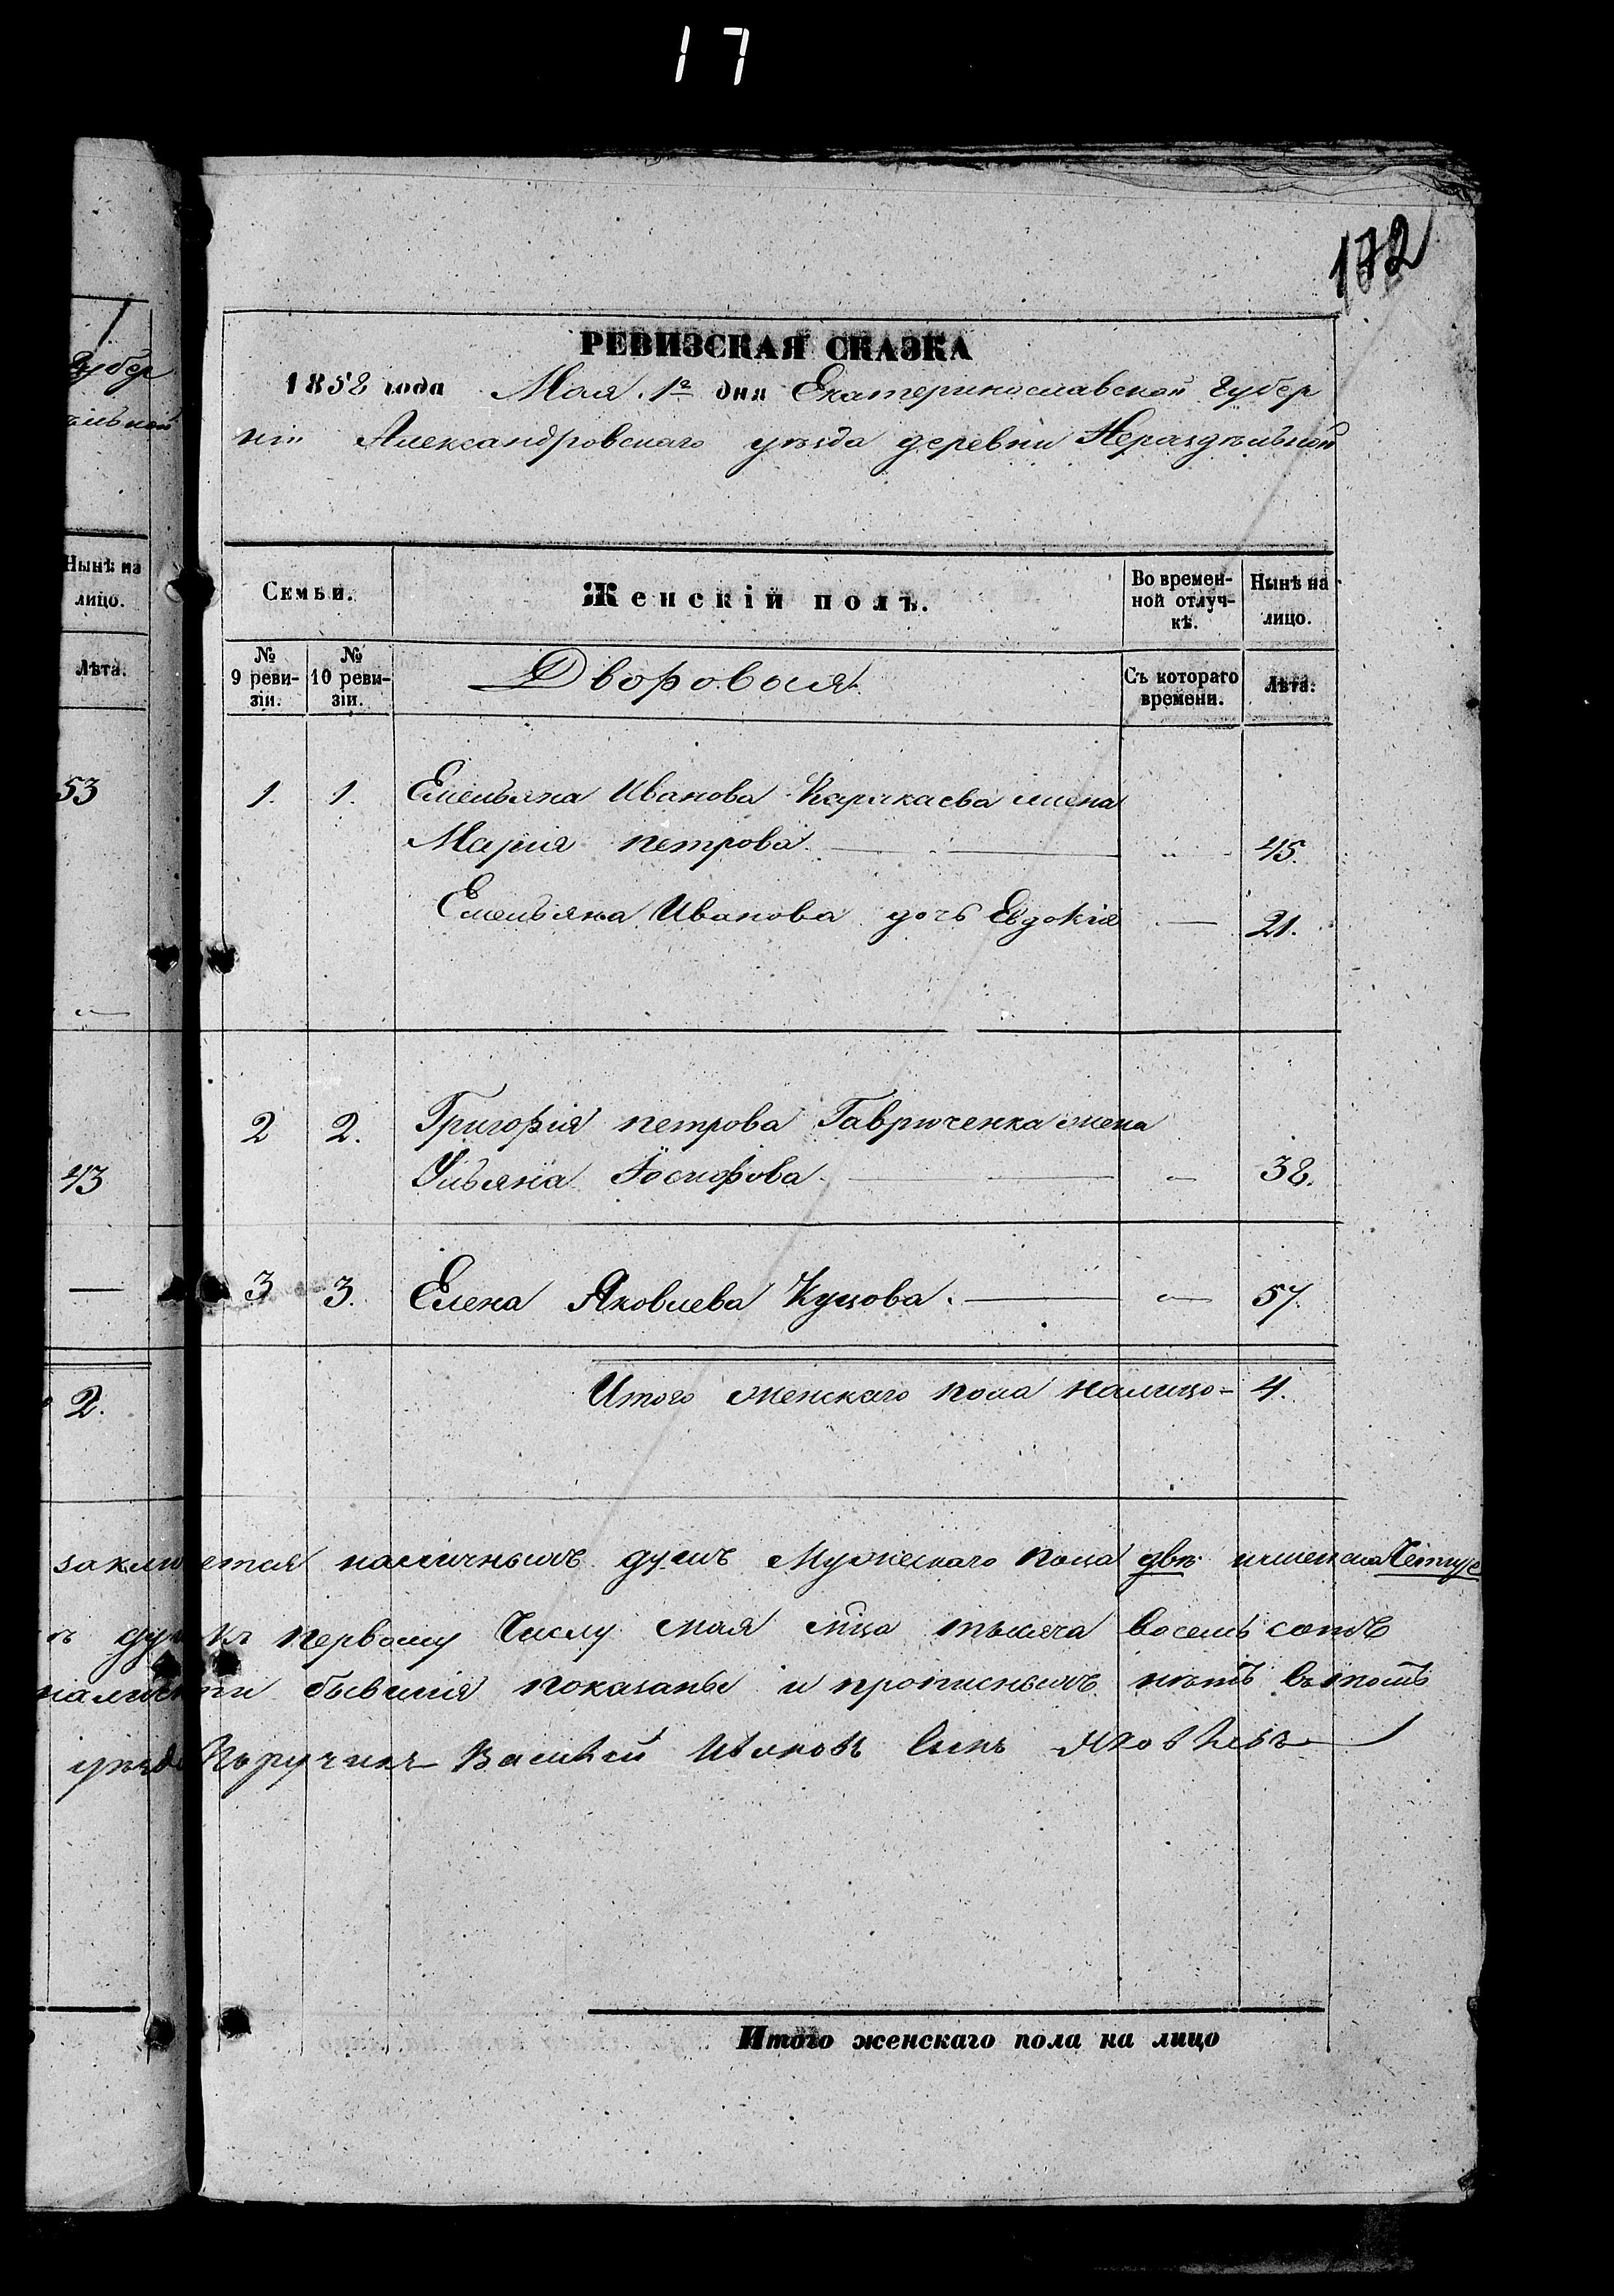 17
172
РЕВИЗСКАЯ СКАЗКА
1858 года Мая 1го дня Екатеринославской губер
ніи Александровскаго уѣзда деревни Нераздѣльной
губер
ѣльной
Нынѣ на
лицо.
Лѣта.
53
43
2.
Семьи.
Женскій полъ.
Во времен-
ной отлуч-
кѣ.
Нынѣ на
лицо.
№
9 реви-
зіи.
№
10 реви-
зіи.
Дворовая
Съ котораго
времени.
Лѣта:
1. 1. Емельяна Иванова жена
Марія петрова 45.
Емельяна Иванова дочь Евдокія 21.
2 2. Григорія петрова Гаврюченка жена
Ульяна Іосифова 38.
3 3. Елена Яковлева Куцова. 57.
Итого женскаго пола налицо - 4.
заключается наличныхъ душъ Мужескаго Пола двѣ и женска Четыре
къ первому Числу мая мца тысяча восемь сотъ
бывшія показаны и прописныхъ нѣтъ въ томъ
Поручикъ Василей Ивановъ Сынъ Яковлевъ
Итого женскаго пола на лицо